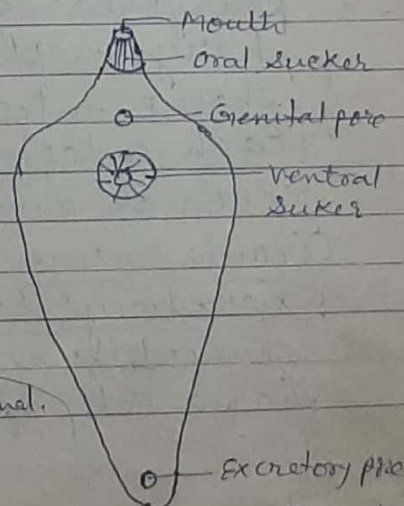 Mouth
Oral sucker
Genital pore
Ventral
Suker
nal.
Excretory pore